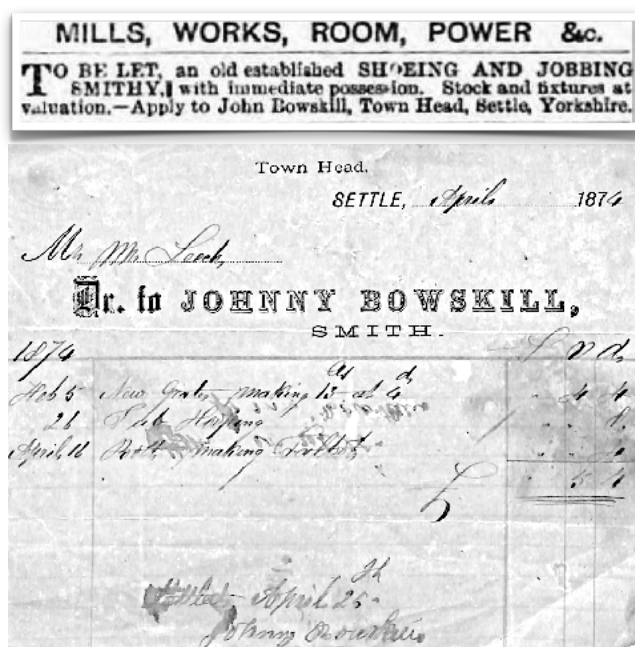 MILLS, WORKS, ROOM, POWER &c.
TO BE LET, an old established SHOEING AND JOBBING
SMITHY, with immediate possession. Stock and fixtures at
valuation.—Apply to John Bowskill, Town Head, Settle, Yorkshire.
Town Head.
SETTLE, April 1874
Mr Wm
Dr. to JOHNNY BOWSKILL,
SMITH.
1874 £ s d
Feb 5 New Grate making 13 at 4 4 4
26 Tub Hooping
April 16 making
5 4
Settled April 25th
Johnny Bowskill